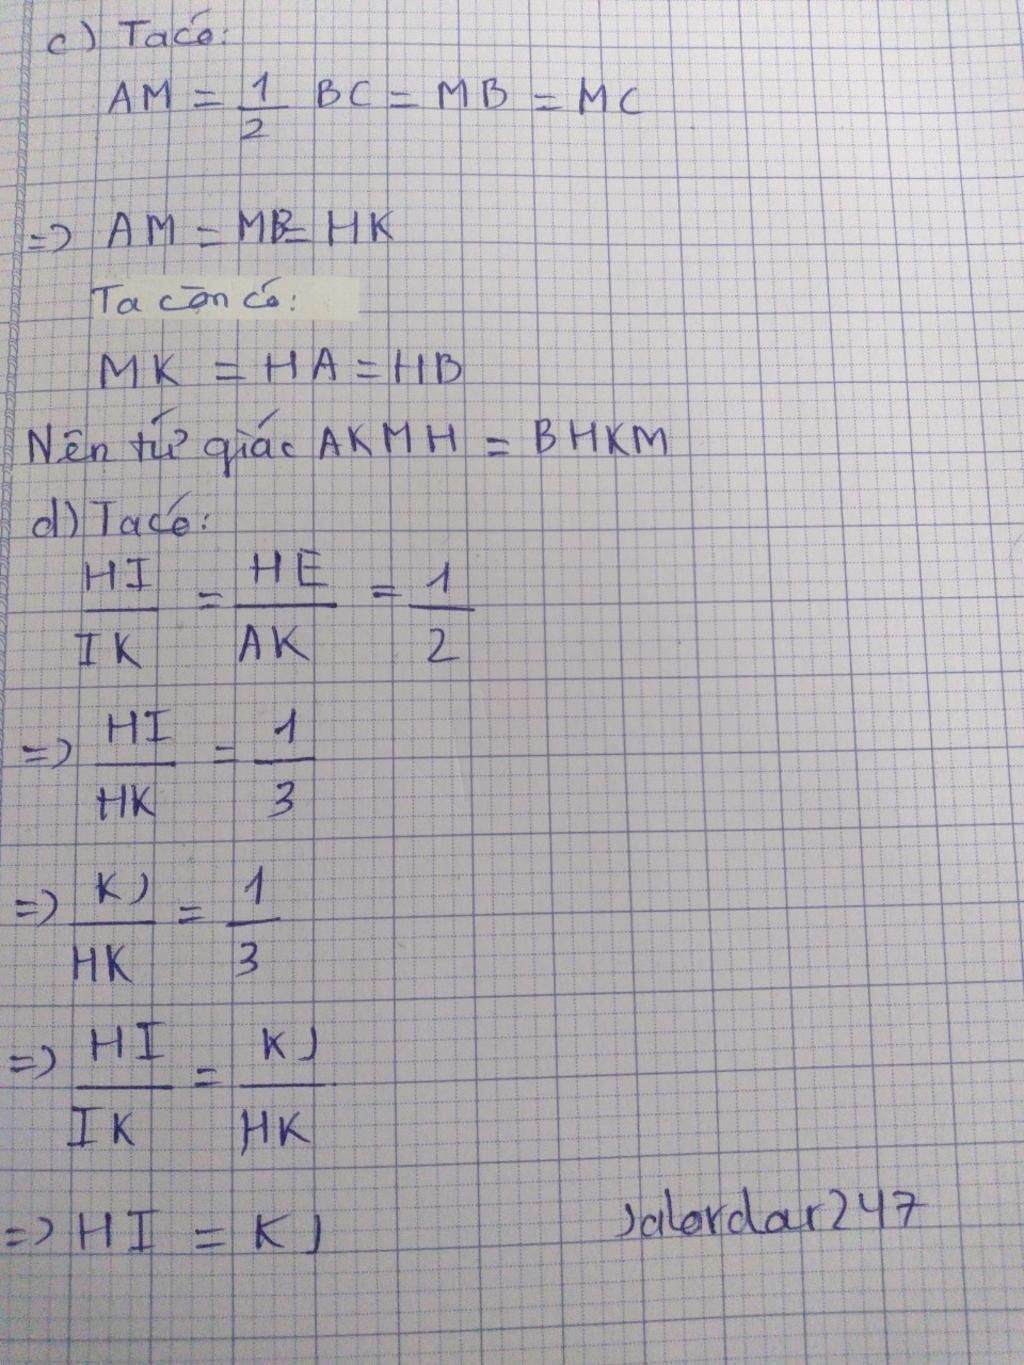 c) Ta có:
AM = 1/2 BC = MB = MC
=> AM = MB = HK
Ta còn có:
MK = HA = HB
Nên tứ giác AKMH = BHKM
d) Ta có:
HI/IK = HE/AK = 1/2
=> HI/HK = 1/3
=> KJ/HK = 1/3
=> HI/IK = KJ/HK
=> HI = KJ
Jalordar247